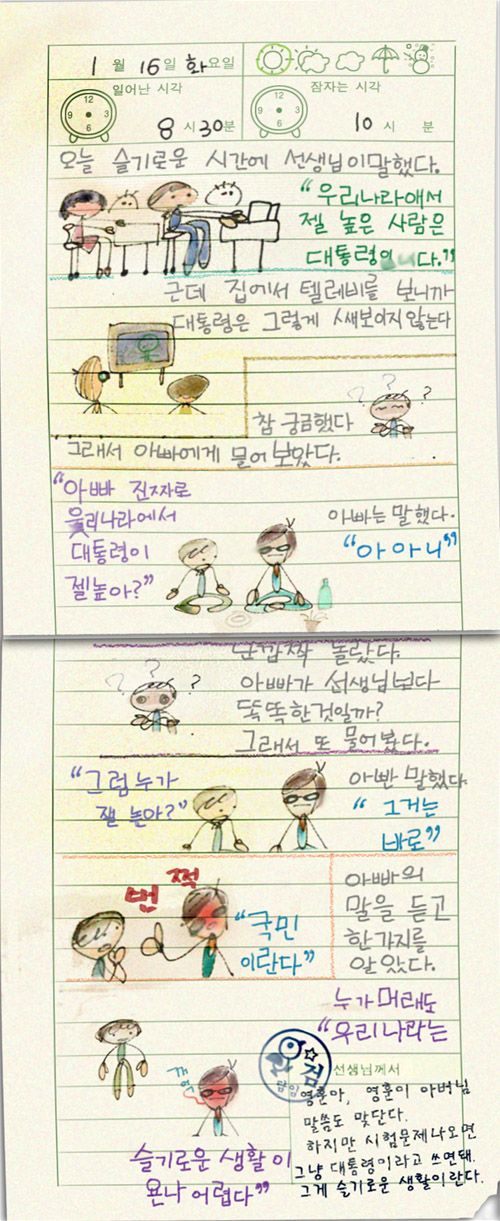 1월 16일 화요일
일어난 시각
잠자는 시각
12
3
6
9
8시 30분
12
3
6
9
10시 분
오늘 슬기로운 시간에 선생님이 말했다.
“우리나라에서
젤 높은 사람은
대통령이니다.”
근데 집에서 텔레비를 보니까
대통령은 그렇게 쌔보이지 않는다
???
참 궁금했다
그래서 아빠에게 물어 보았다.
“아빠 진짜로
우리나라에서
대통령이
젤높아?”
아빠는 말했다.
“아아니”
난 깜짝 놀랐다.
???
아빠가 선생님보다
똑똑한것일까?
그래서 또 물어봤다.
“그럼누가
젤 높아?”
아빤 말했다
“그거는
바로”
번쩍
“국민
이란다”
아빠의
말을 듣고
한가지를
알았다.
누가 머래도
“우리나라는
캬악
슬기로운 생활이
욘나 어렵다”
참 잘
점
선생님께서
영훈아, 영훈이 아버님
말씀도 맞단다.
하지만 시험문제나오면
그냥 대통령이라고 쓰면돼.
그게 슬기로운 생활이란다.